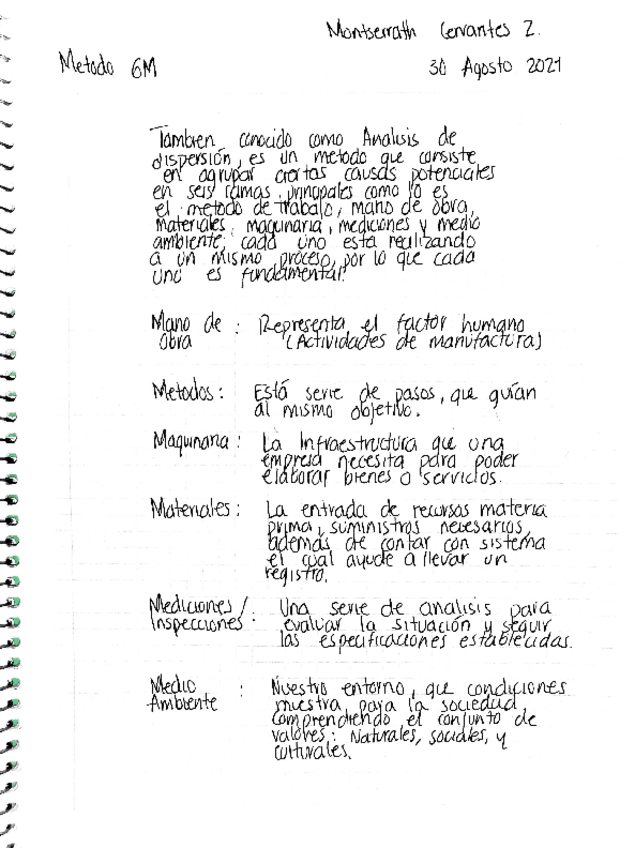 Montserrath Cervantes Z.
Metodo 6M
30 Agosto 2021
Tambien conocido como Analisis de
dispersión, es un metodo que consiste
en agrupar ciertas causas potenciales
en seis ramas principales como lo es
el metodo de trabajo, mano de obra,
materiales, maquinaria, mediciones y medio
ambiente, cada uno esta realizando
a un mismo proceso, por lo que cada
uno es fundamental.
Mano de : Representa el factor humano
Obra (Actividades de manufactura)
Metodos: Está serie de pasos, que guían
al mismo objetivo.
Maquinaria: La Infraestructura que una
empresa necesita para poder
elaborar bienes o servicios.
Materiales: La entrada de recursos materia
prima, suministros necesarios,
además de contar con sistema
el cual ayude a llevar un
registro.
Mediciones / Una serie de analisis para
Inspecciones: evaluar la situación y seguir
las especificaciones establecidas.
Medio : Nuestro entorno, que condiciones
Ambiente muestra para la sociedad,
comprendiendo el conjunto de
valores: Naturales, sociales, y
culturales.